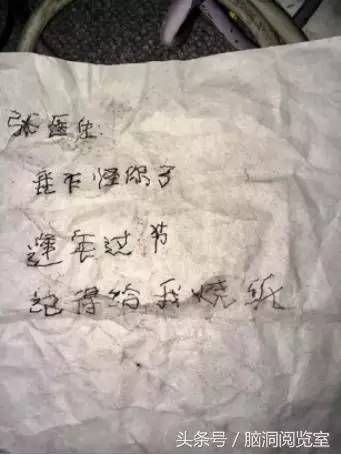 张医生:
不怪你了
逢年过节
记得给我烧纸
头条号 / 脑洞阅览室